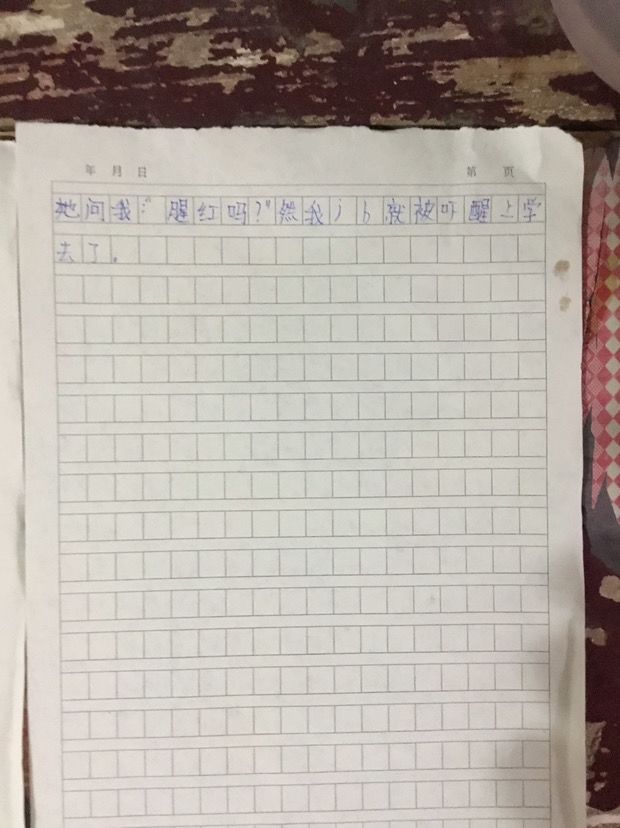 年 月 日
第 页
她问我:“腥红吗?”然我jb就被吓醒上学
去了。